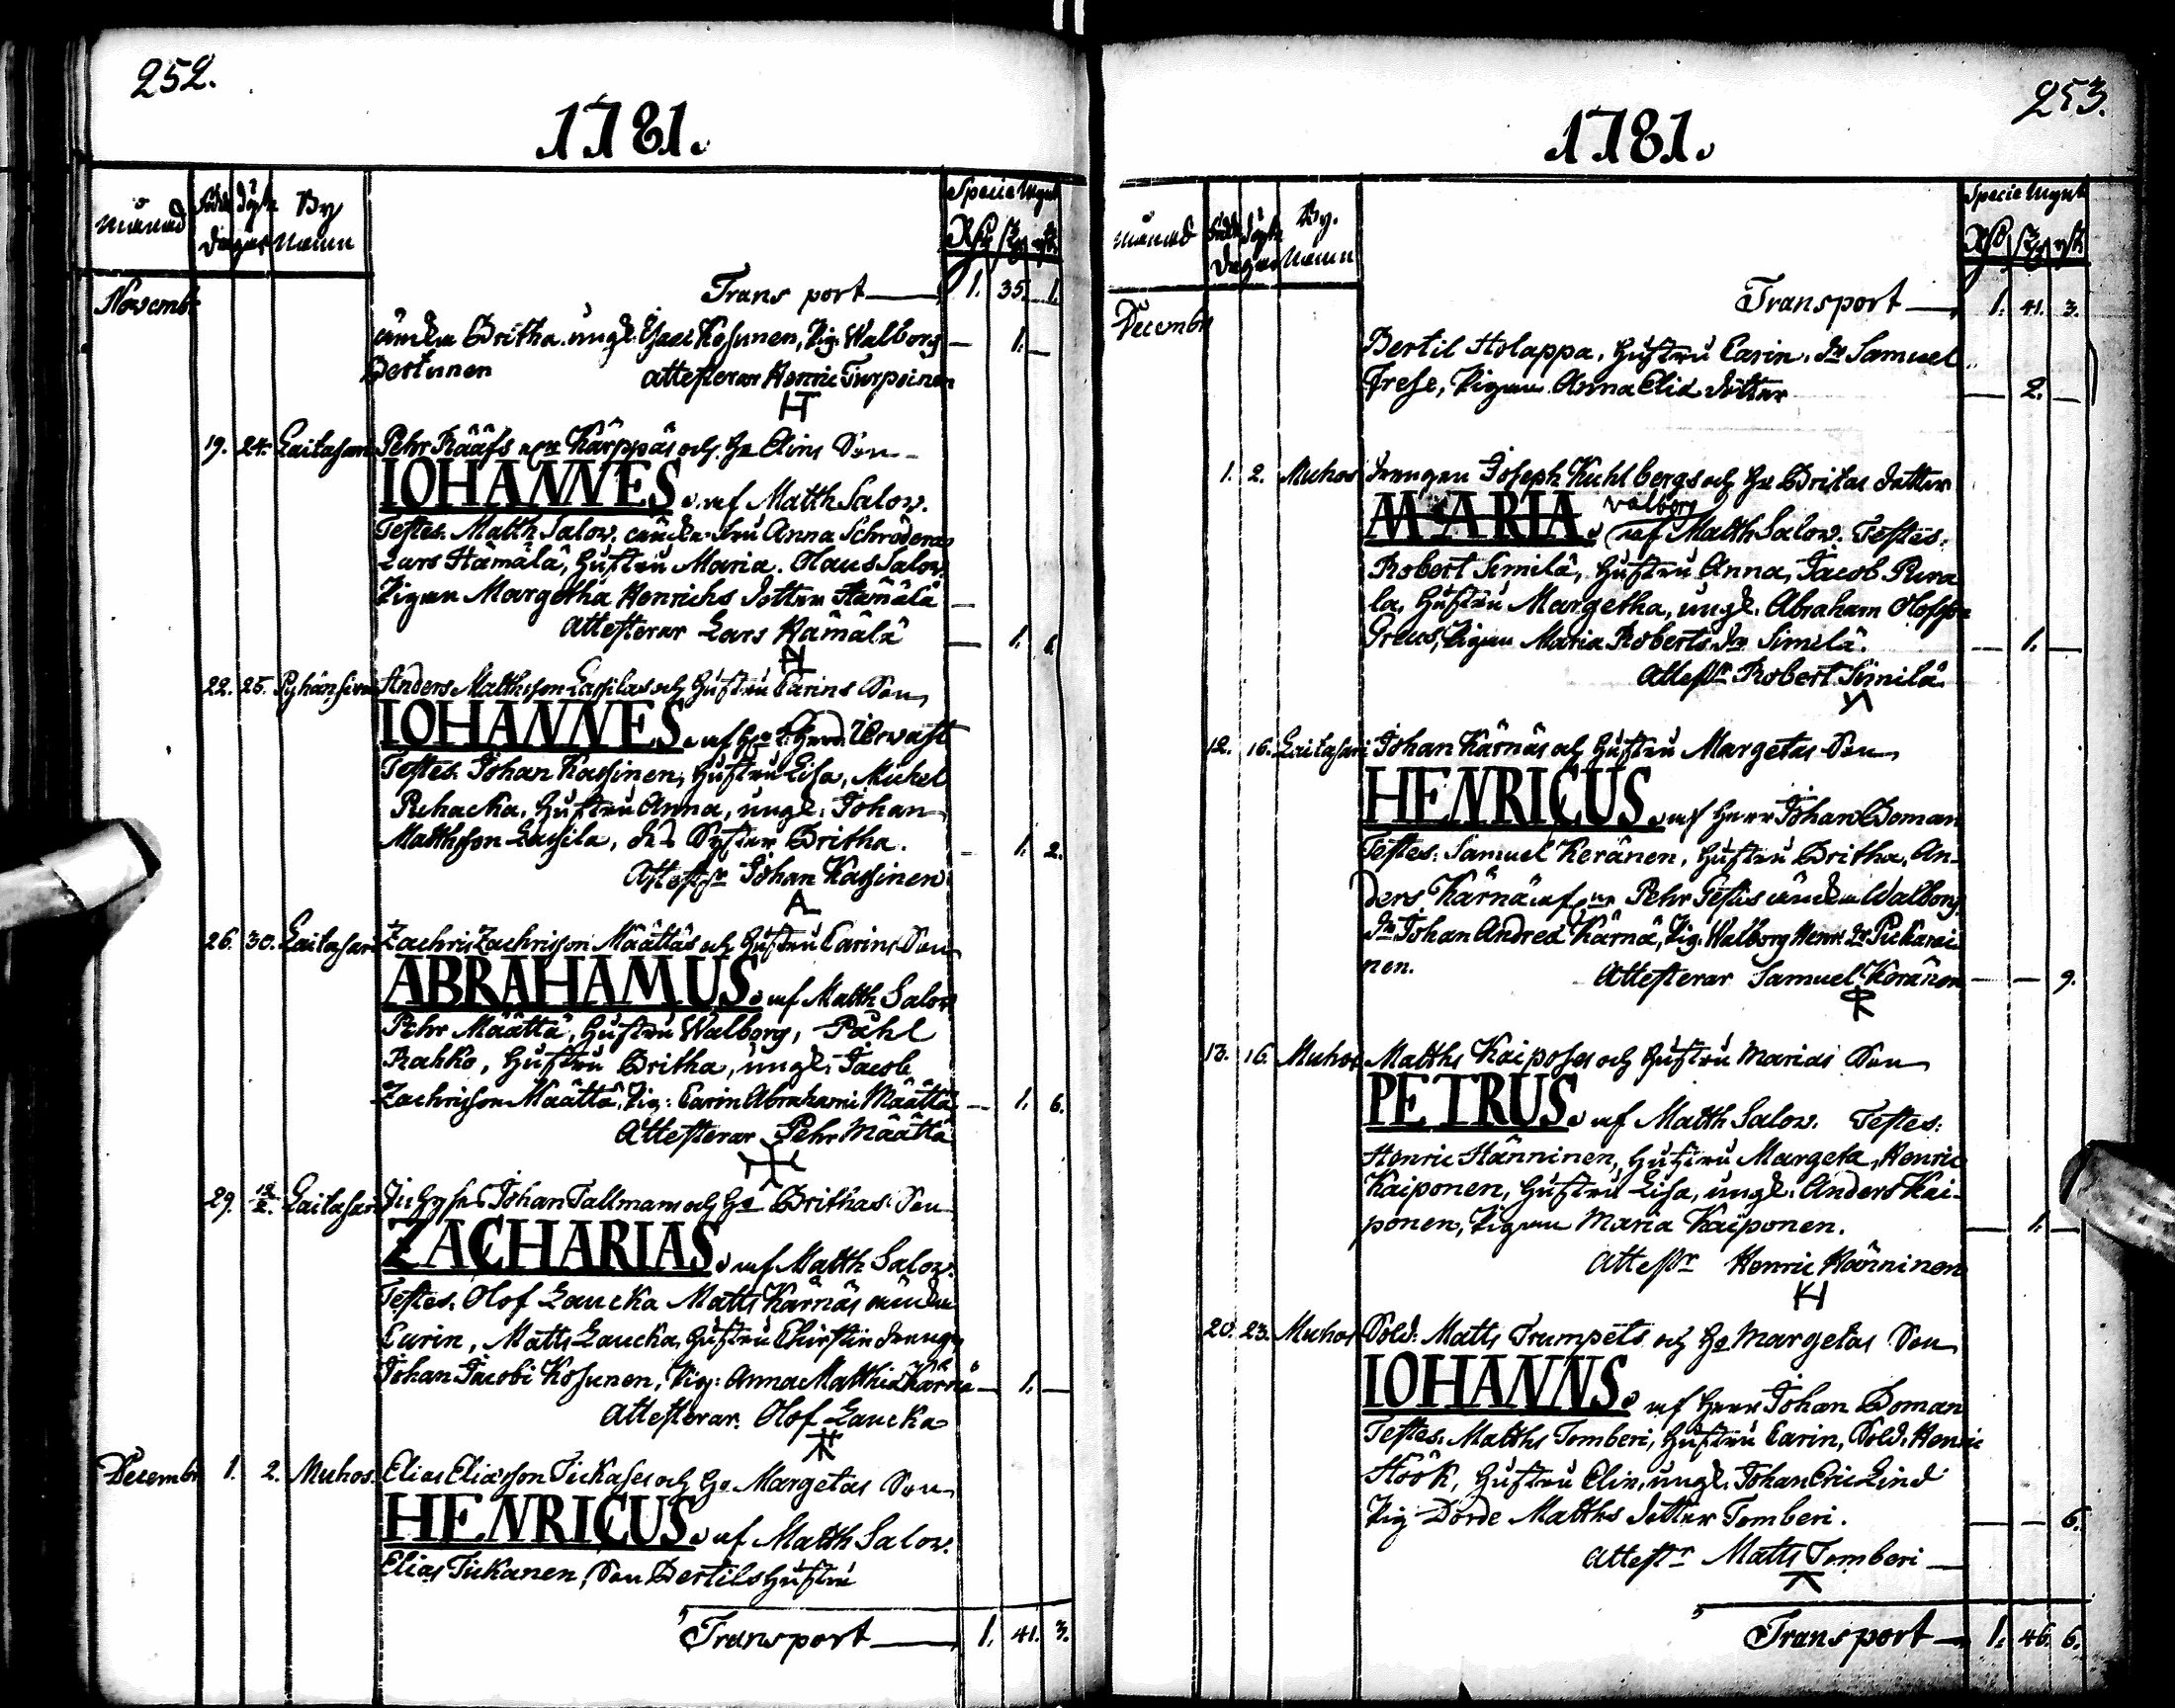 252.
1781.
Månad Född Döpt By Specie Mynt
Dagar Namn Rd ß rst
Novembr Transport 1. 35. 1.
änkan Britha. ungk. Isaac Kosunen, Pig. Walborg — 1. —
Bertunen attesterar Henric Turpeinen
19. 24. Laitasari Pehr Rääfs Kärppäs och Ho Elins Son
IOHANNES. af Matth Salov.
Testes. Matth Salov, Hru Anna Schröder
Lars Hämälä, Hustru Maria. Olaus Salov,
Pigan Margetha Henrichs dotter Hämälä
Attesterar Lars Hämälä — 1.
22. 25. Anders Mattsson Lassilas och Hustru Carins Son
IOHANNES. af
Testes. Johan Kassinen, Hustru Lisa, Michel
Puhacka, Hustru Anna, ungk. Johan
Mattsson Lassila, Syster Britha. — 1. 2.
Attestr Johan Kassinen
26. 30. Laitasari Zachris Zachrisson Määttäs och Hustru Carins Son
ABRAHAMUS. af Matth Salov
Pehr Määttä, Hustru Walborg, Påhl
Rahko, Hustru Britha, ungk. Jacob
Zachrisson Määttä, Pig: Carin Abrahami Määttä — 1. 6.
Attesterar Pehr Määttä
29. Laitasari Johan Tallmans och Ho Brithas Son
ZACHARIAS. af Matth Salov.
Testes. Olof Laucka Matts Kärnäs änkan
Carin, Matts Laucka, Hustru Chirstin drengn
Johan Jacobi Kosunen, Pig: Anna Matthiæ Kärnä — 1. —
Attesterar. Olof Laucka
Decembr 1. 2. Muhos. Elias Eliasson Tickases och Ho Margetas Son
HENRICUS. af Matth Salov.
Elias Tickanen, Son Bertils Hustru
Transport 1. 41. 3.
253.
1781.
Månad Född Döpt By. Specie Mynt
Dagar Namn Rd ß rst
Decembr Transport 1. 41. 3.
Bertil Holappa, Hustru Carin, Dr Samuel
Frese, Pigan Anna Eliæ dotter — 2. —
1. 2. Muhos drengen Joseph Kuhlbergs och Ho Britas dotter
Valborg
MARIA. af Matth Salov. Testes.
Robert Similä, Hustru Anna, Jacob Pura
la, Hustru Margetha, ungk. Abraham Olofsson
Greus, Pigan Maria Roberts Dr Similä. — 1. —
Attestr Robert Similä
12. 16. Laitasari Johan Kärnäs och Hustru Margetas Son
HENRICUS. af Herr Johan Boman
Testes: Samuel Keränen, Hustru Britha, An-
ders Kärnä Pehr änkan Walborg
Dr Johan Andreæ Kärnä, Pig. Walborg Henr. Dr Pickarai
nen. Attesterar Samuel Keränen — — 9.
13. 16. Muhos Matths Kaiposes och Hustru Marias Son
PETRUS. af Matth Salov. Testes:
Henric Hänninen, Hustru Margeta, Henric
Kaiponen, Hustru Lisa, ungk. Anders Kai-
ponen, Pigan Maria Kaiponen. — 1. —
Attestr Henric Hänninen
20. 23. Muhos Sold. Matts Trumpets och Ho Margetas Son
IOHANNS. af Herr Johan Boman
Testes. Matths Tomberi, Hustru Carin, Sold. Henric
Höök, Hustru Elin, ungk. Johan Eric Lind
Pig Dorde Matths dotter Tomberi. — — 6.
Attestr Matts Tomberi
Transport 1. 46. 6.